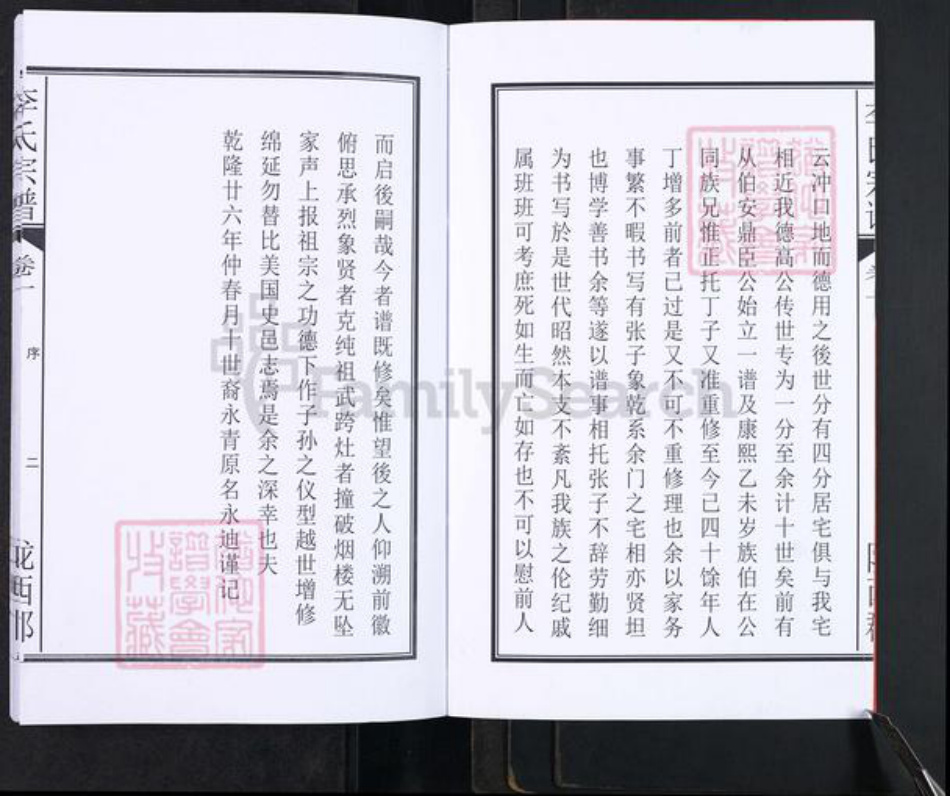 云冲口地而德用之後世分有四分居宅俱与我宅
相近我德高公传世专为一分至余计十世矣前有
从伯安鼎臣公始立一谱及康熙乙未岁族伯在公
同族兄惟正托丁子又准重修至今己四十馀年人
丁增多前者己过是又不可不重修理也余以家务
事繁不暇书写有张子象乾系余门之宅相亦贤坦
也博学善书余等遂以谱事相托张子不辞劳勤细
为书写於是世代昭然本支不紊凡我族之伦纪戚
属班班可考庶死如生而亡如存也不可以慰前人
而启後嗣哉今者谱既修矣惟望後之人仰溯前徽
俯思承烈象贤者克纯祖武跨灶者撞破烟楼无坠
家声上报祖宗之功德下作子孙之仪型越世增修
绵延勿替比美国史邑志焉是余之深幸也夫
乾隆廿六年仲春月十世裔永青原名永迪谨记
李氏宗谱
卷一
序
二
陇西郡
FamilySearch